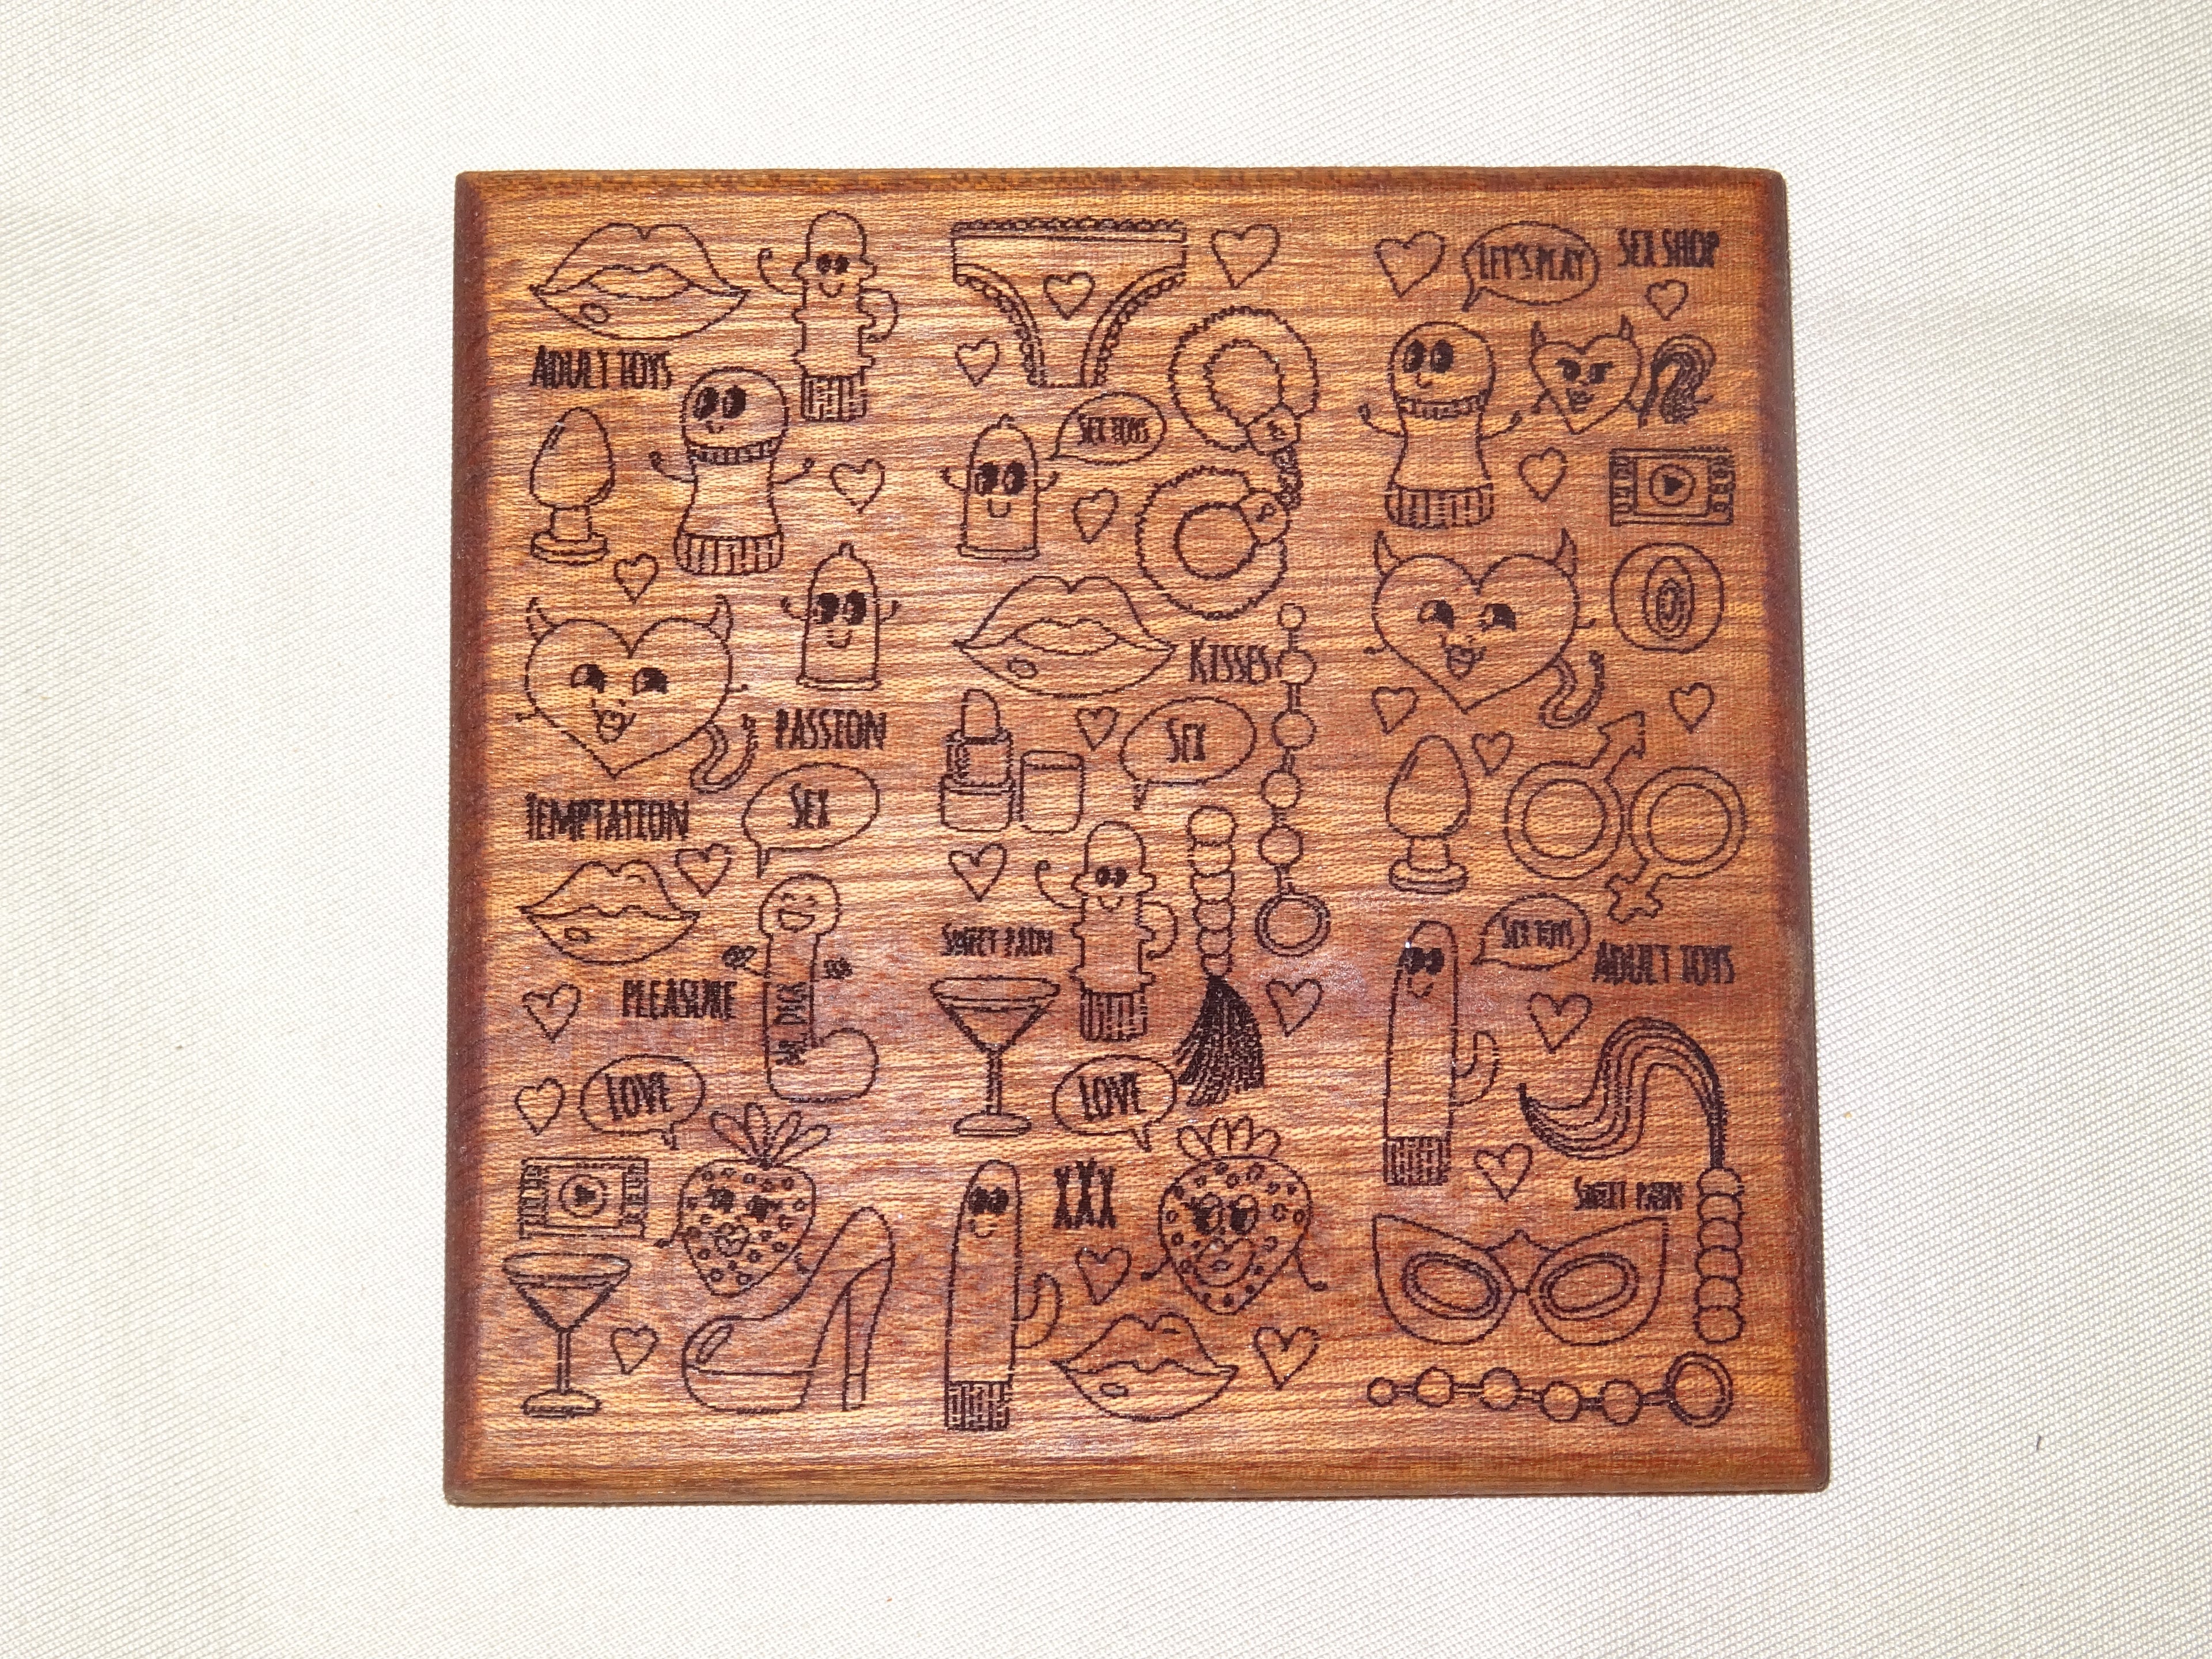 LET'S PLAY
SEX SHOP
ADULT TOYS
SEX TOYS
KISSES
PASSION
SEX
TEMPTATION
SEX
SWEET PAIN
SEX TOYS
ADULT TOYS
PLEASURE
MR. DICK
LOVE
LOVE
XXX
SWEET PAIN